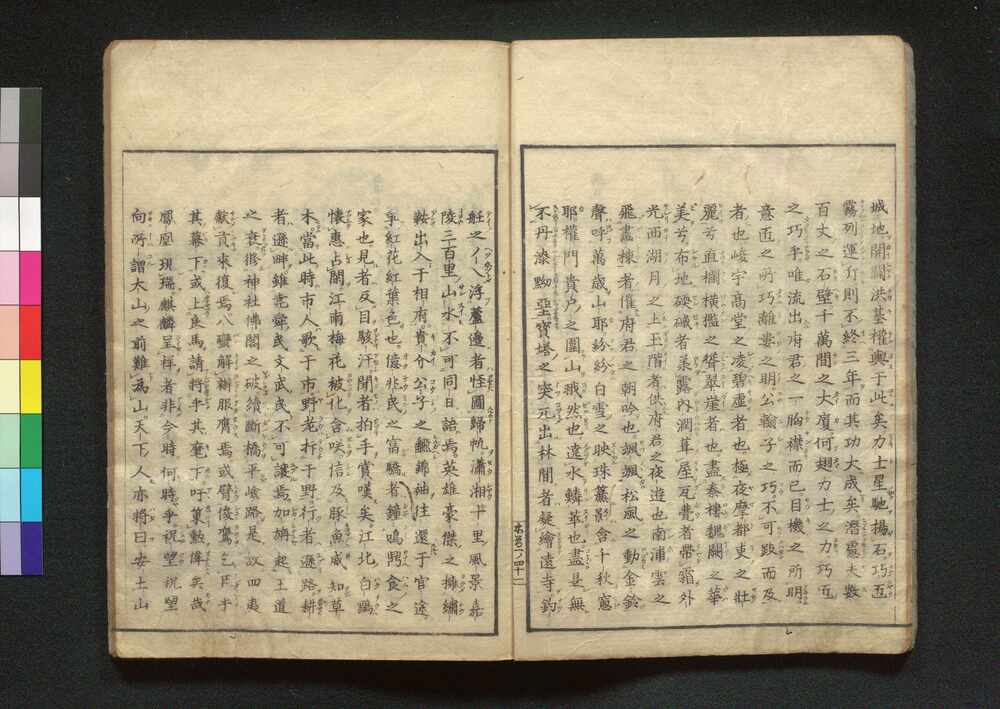 城地開闢洪基權輿于此矣力士星馳揚石巧匠
霧列運斤則不終三年而其功大成矣濳靈夫數
百丈之石壁千萬間之大廈何翅力士之力巧匠
之巧乎唯流出府君之一胸襟而已目機之所明
意匠之所巧離婁之明公輸子之巧不可跂而及
者也峻宇高堂之凌碧虛者也極夜摩都吏之壯
麗兮直欄橫檻之聳翠崖者也盡秦樓魏闕之華
美兮布地礎磶者柔露内潤葺屋瓦甍者帶霜外
光西湖月之上玉階者供府君之夜遊也南浦雲之
飛畫棟者催府君之朝吟也颯颯松風之動金鈴
聲呼萬歲山耶紛紛白雪之映珠簾影含千秋窓
耶權門貴戶之圍山峨然也遠水鱗萃也盡是無
不丹漆黝堊寶塔之突兀出林間者疑繪遠寺鈞
本首一ノ四十二
艇之八浮蘆邊者怪圖歸帆瀟湘十里風景嘉
陵三百里山水不可同日語焉英雄豪傑之擁繡
鞍出入于相府貴介公子之飜錦袖往還于官途
乎紅花紅葉色也億兆民之富驕者鐘鳴鼎食之
家也見者反目駭汗聞者拍手賞嘆矣江北白鷗
懷惠占閑江南梅花被化含咲信及豚魚感知草
木當此時市人歌于市野老抃于野行者遜路耕
者遜畔雖堯舜民文武民不可讓焉加旃起王道
之衰修神社佛閣之破續斷橋平嶮路是故四夷
獻貢來復焉八蠻解辮服膺焉或臂俊鷹乞臣乎
其幕下或上良馬請將乎其麾下吁菓勲偉矣哉
鳳凰現瑞麒麟呈祥者非今時何時乎祝望祝望
向所謂大山之前難為山天下人亦將曰安土山